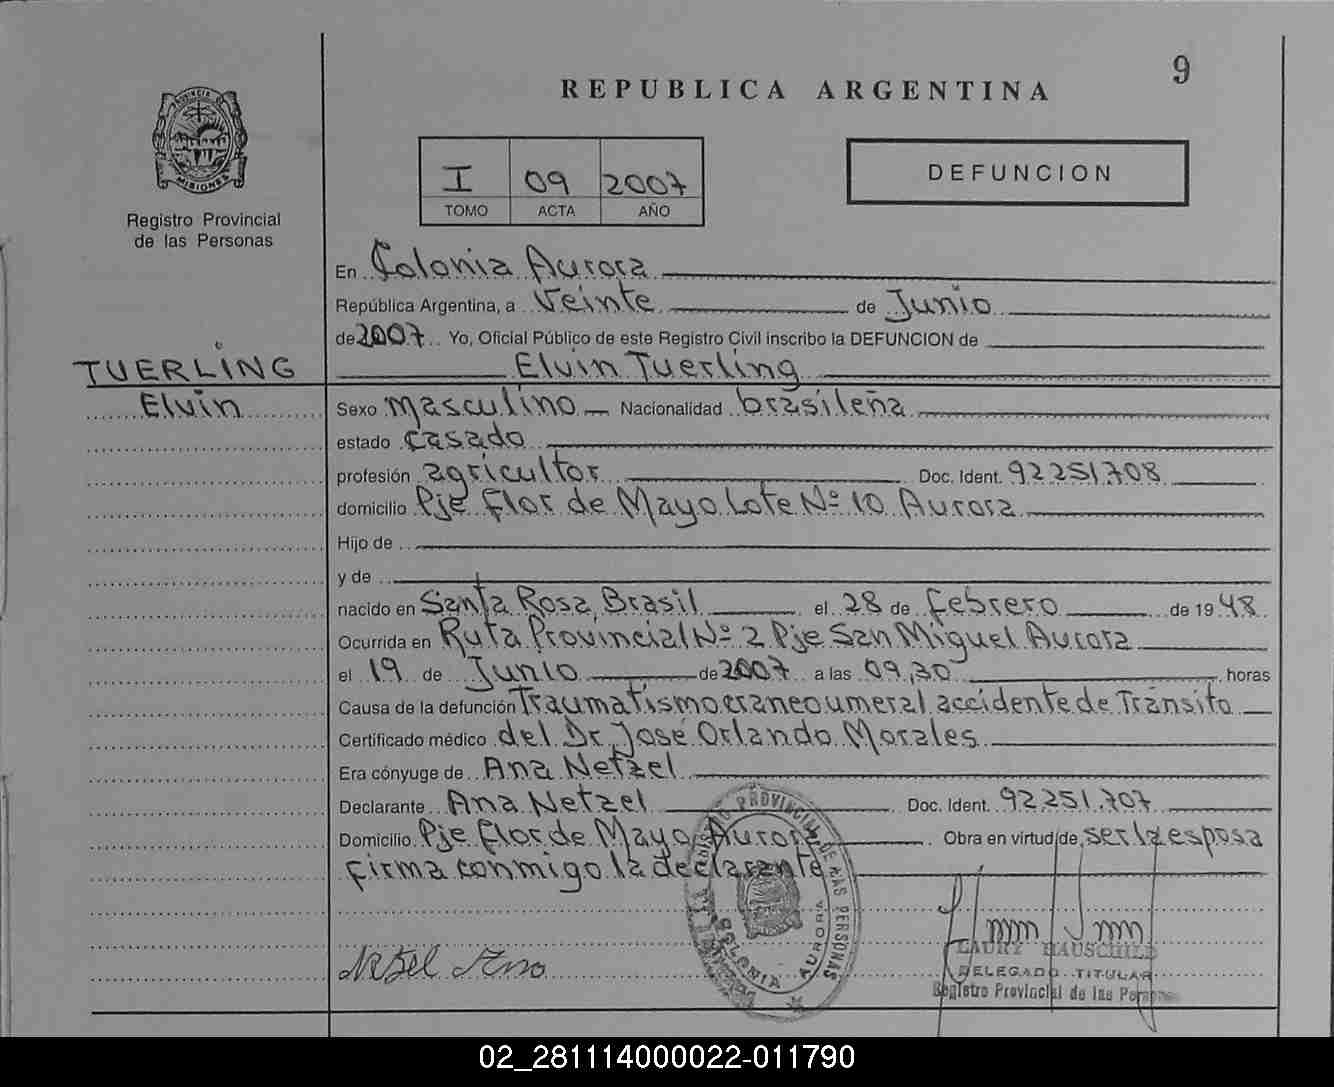 9
REPUBLICA ARGENTINA
PROVINCIA DE
MISIONES
Registro Provincial
de las Personas
I 09 2007
TOMO ACTA AÑO
DEFUNCION
En Colonia Aurora
República Argentina, a Veinte de Junio
de 2007 Yo, Oficial Público de este Registro Civil inscribo la DEFUNCION de
TUERLING
Elvin Tuerling
Elvin
Sexo masculino Nacionalidad brasileña
estado casado
profesión agricultor Doc. Ident. 92251.708
domicilio Pje Flor de Mayo Lote Nº 10 Aurora
Hijo de
y de
nacido en Santa Rosa, Brasil el 28 de Febrero de 1948
Ocurrida en Ruta Provincial Nº 2 Pje San Miguel Aurora
el 19 de Junio de 2007 a las 09,30 horas
Causa de la defunción Traumatismo craneo umeral accidente de Tránsito
Certificado médico del Dr José Orlando Morales
Era cónyuge de Ana Netzel
Declarante Ana Netzel Doc. Ident. 92251.707
Domicilio Pje Flor de Mayo Aurora Obra en virtud de ser la esposa
firma conmigo la declarante
REGISTRO PROVINCIAL DE LAS PERSONAS
COLONIA AURORA
Netzel Ana
LAURY HAUSCHILD
DELEGADO TITULAR
Registro Provincial de las Personas
02_281114000022-011790